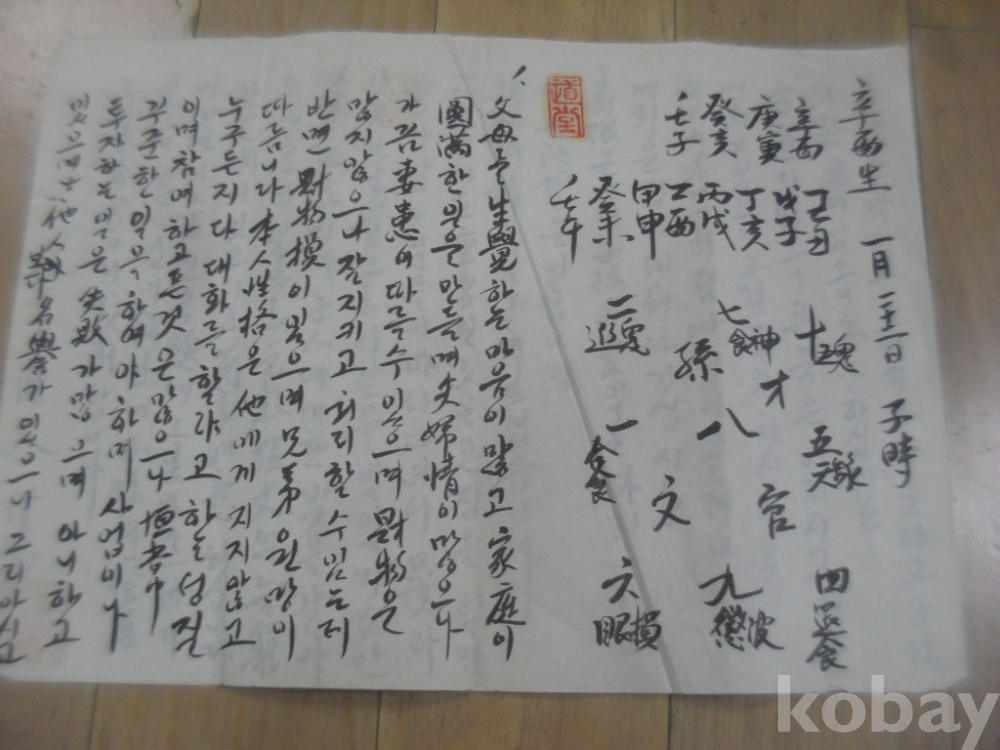 辛酉生 一月二十二日 子時
辛酉 己丑 十魂 五天祿 四
庚寅 戊子 才 官
癸亥 丁亥 七食神 八 九
壬子 丙戌 孫
乙酉 文
甲申 二 一食 六眼損
癸未
壬午
道堂
一、父母를 生覺하는 마음이 많고 家庭이
圓滿한 일을 만들며 夫婦情이 많으나
가끔 妻患이 따를수 있으며 財物은
많지않으나 잘지키고 처리할수있는데
반면 財物損이 있으며 兄弟원망이
따릅니다 本人性格은 他에게 지지않고
누구든지 다 대화를 할라고 하는 성질
이며 참여하고픈것은많으나
꾸준한일을 하여야 하며 사업이나
투자하는 일은 失敗가많으며 아니하고
있으며 他人 名譽가 있으니 그리아시고
kobay